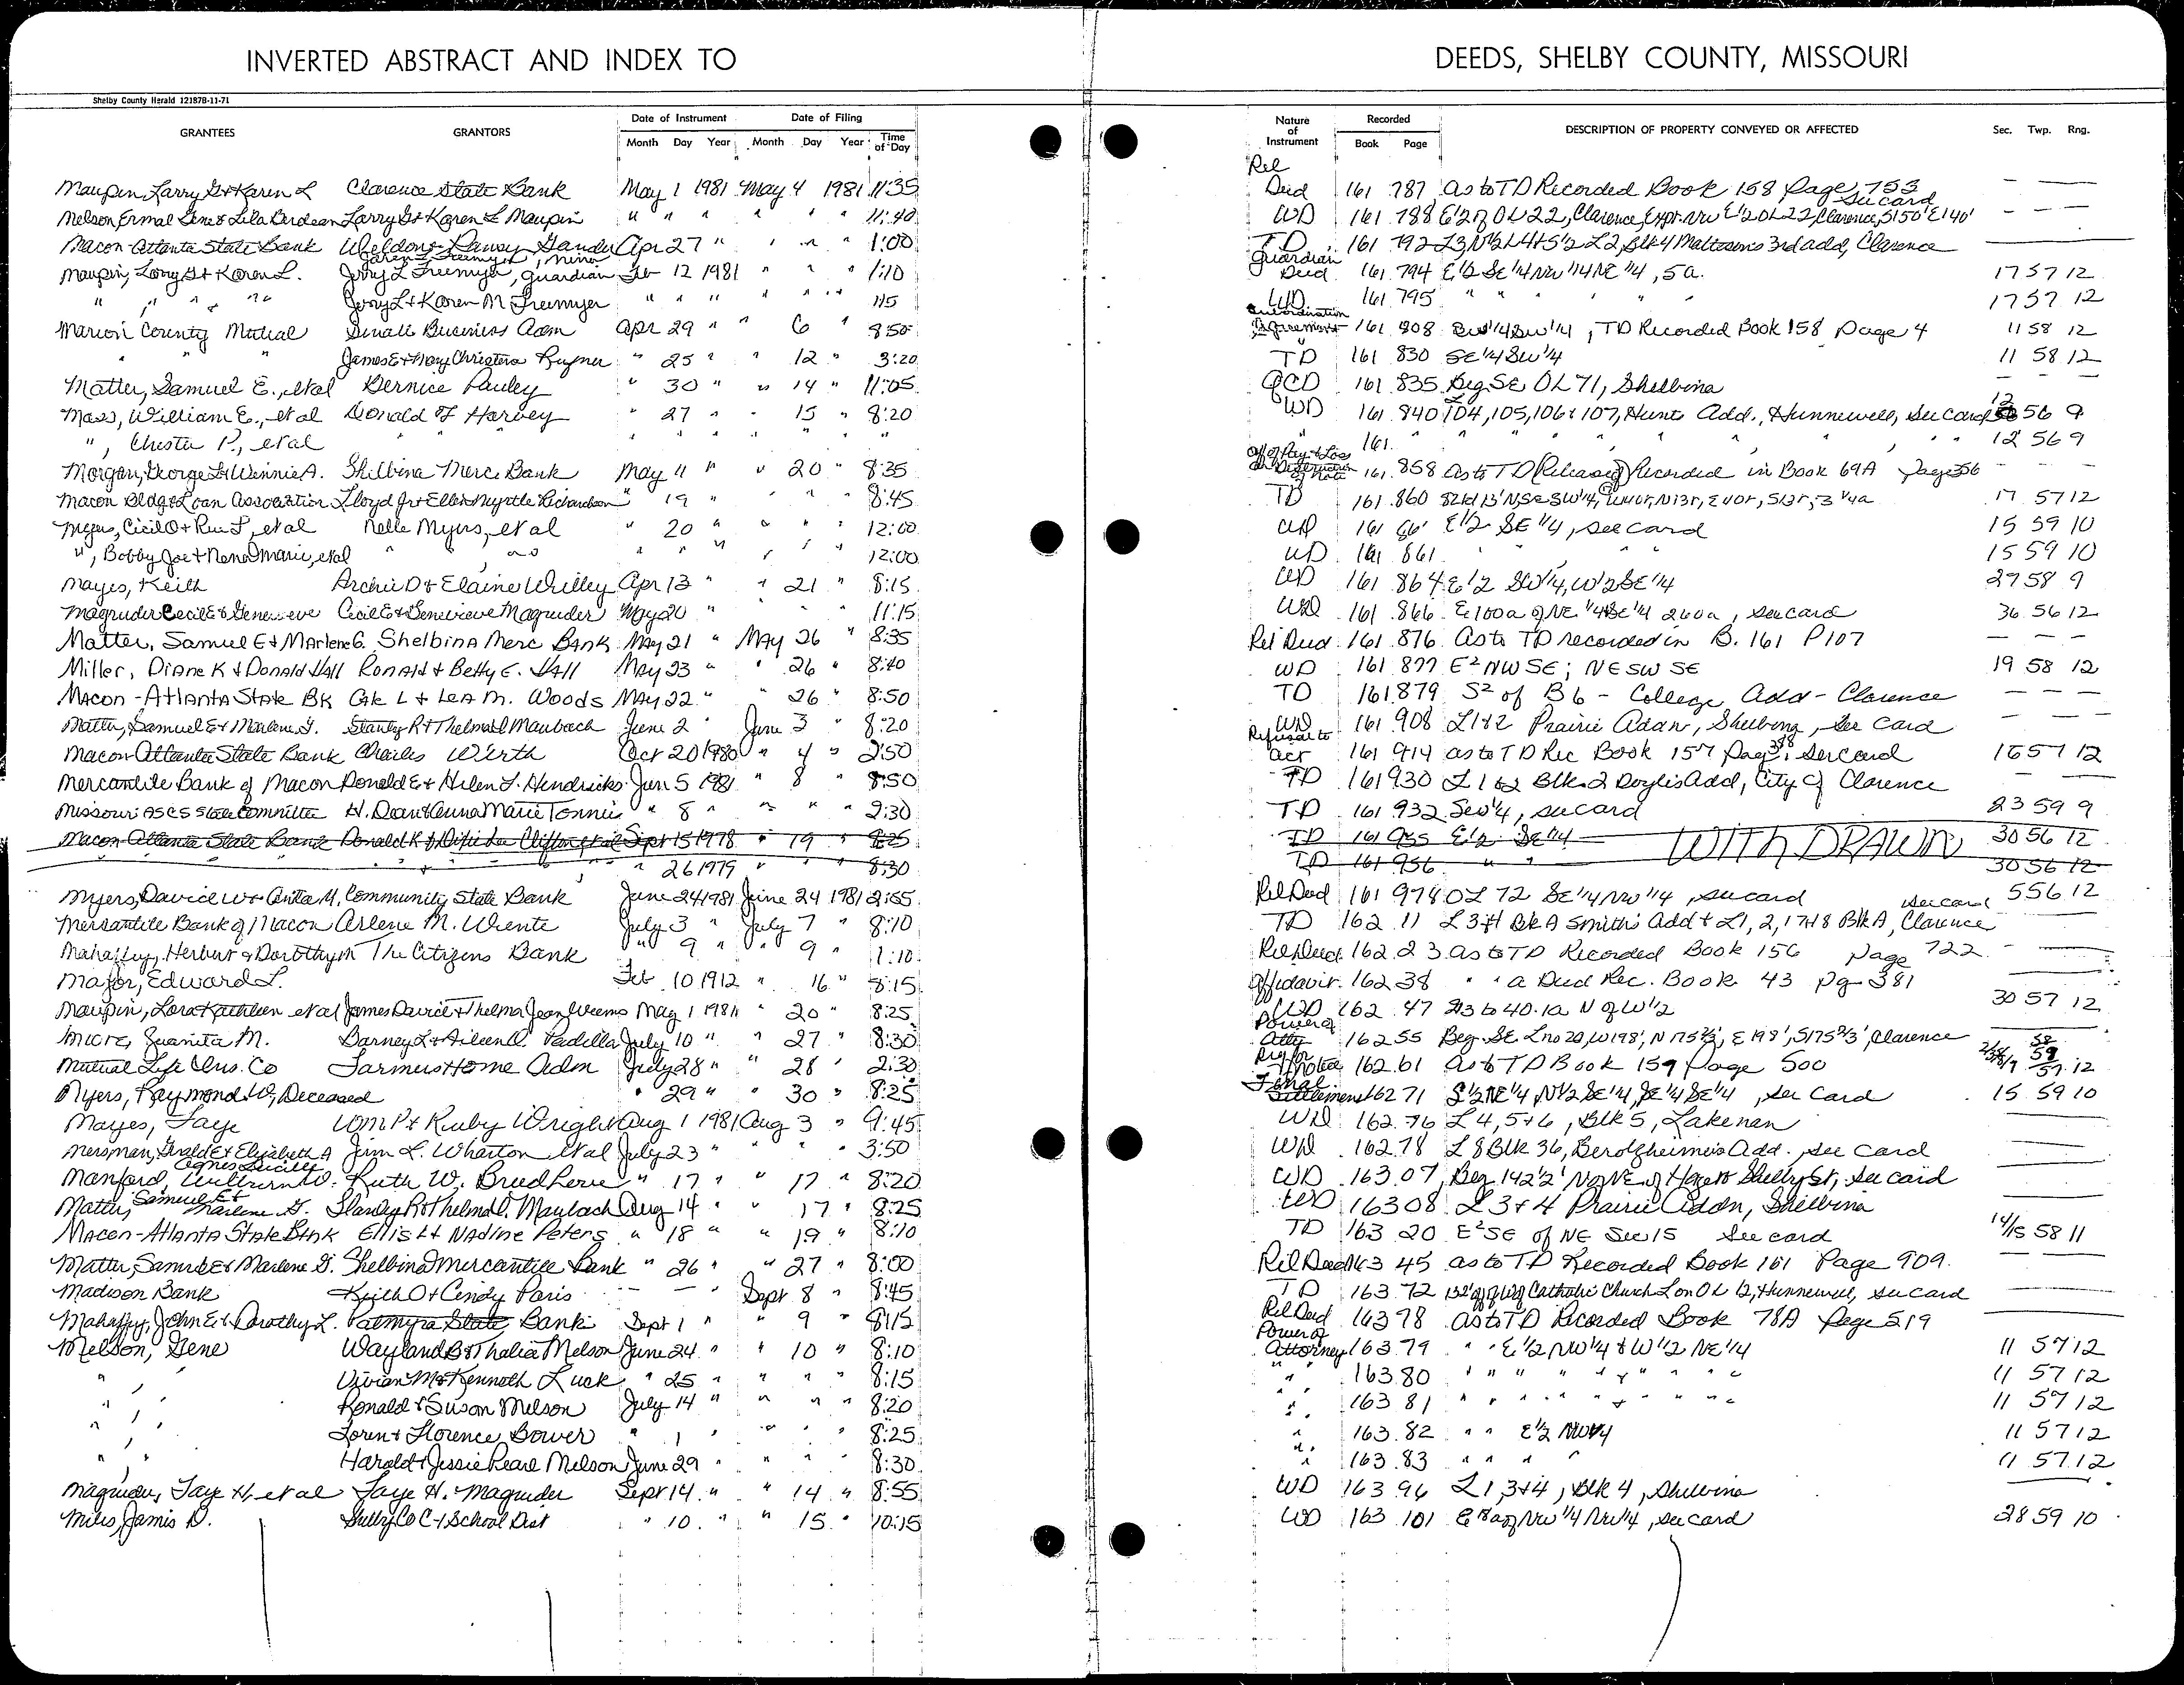 INVERTED ABSTRACT AND INDEX TO
DEEDS, SHELBY COUNTY, MISSOURI
Shelby County Herald 12187B-11-71
GRANTEES GRANTORS Date of Instrument Date of Filing Nature of Instrument Recorded DESCRIPTION OF PROPERTY CONVEYED OR AFFECTED Sec. Twp. Rng.
Month Day Year Month Day Year Time of Day Book Page
Maupin, Larry G & Karen L Clarence State Bank May 1 1981 May 4 1981 11:35 Rel Deed 161 787 As to TD Recorded Book 158 Page 753 see card — —
Nelson Ermal Gene & Lila Larry G & Karen L Maupin " " " " " " 11:40 WD 161 788 E½ of OL 22, Clarence, Expt. NW E½ OL 22, Clarence, S150' E140' — — —
Macon-Atlanta State Bank Apr 27 " " " " 1:00 TD 161 792 L3 N½ L4 & S½ L2, Blk 4 3rd add, Clarence
Maupin, Larry G & Karen L. Jerry L Freemyer, guardian Feb 12 1981 " " " 1:10 Guardian Deed 161 794 E½ SE¼ NW¼ NE¼, 5a. 17 57 12
" " " " Jerry L & Karen M Freemyer " " " " " " 115 WD 161 795 " " " " " 17 57 12
Marion County Mutual Small Business Adm Apr 29 " " 6 " 850 Subordination Agreement 161 808 SW¼ SW¼, TD Recorded Book 158 Page 4 11 58 12
" " " James E & Mary Christena " 25 " " 12 " 3:20 TD 161 830 SE¼ SW¼ 11 58 12
Matter, Samuel E., etal Bernice Pauley " 30 " " 14 " 11:05 QCD 161 835 Beg SE OL 71, Shelbina — — —
Mass, William E., etal Donald F Harvey " 27 " " 15 " 8:20 WD 161 840 L 104, 105, 106 & 107, Hunts Add., Hunnewell, see card 12 56 9
", Chester P., etal " " " " " " " " 161 " " " " " " 12 56 9
Morgan, George L & Winnie A. Shelbina Merc Bank May 4 " " 20 " 8:35 Aff of Pay & Loss or Destruction of Note 161 858 As to TD (Released) Recorded in Book 69A Page 356 — — —
Macon Bldg & Loan Association Lloyd Jr & Ellen Myrtle Richardson " 19 " " " " 8:45 TD 161 860 17 57 12
Myers, Cecil O & Rue F, etal Nelle Myers, etal " 20 " " " " 12:00 WD 161 E½ SE¼, see card 15 59 10
", Bobby Joe & Nena Marie, etal " " " " " " " " 12:00 WD 161 861 " " " 15 59 10
Mayes, Keith Archie D & Elaine Willey Apr 13 " " 21 " 8:15 WD 161 864 E½ SW¼, W½ SE¼ 29 58 9
Magruder Cecil E & Genevieve Cecil E & Genevieve Magruder May 20 " " " " 11:15 WD 161 866 E 100a of NE¼ & SE¼ 260a, see card 36 56 12
Matter, Samuel E & Marlene G. Shelbina Merc Bank May 21 " May 26 " 8:35 Rel Deed 161 876 As to TD recorded in B. 161 P 107 — — —
Miller, Diane K & Donald Hall Ronald & Betty E. Hall May 23 " " 26 " 8:40 WD 161 877 E² NW SE; NE SW SE 19 58 12
Macon-Atlanta State Bk L & Lea M. Woods May 22 " " 26 " 8:50 TD 161 879 S² of B 6 - College Add - Clarence — — —
Matter, Samuel E & Marlene G. Stanley R & Thelma D Maubach June 2 " June 3 " 8:20 WD 161 908 L 1 & 2 Prairie Addn, Shelbina, See Card — — —
Macon-Atlanta State Bank Charles Wirth Oct 20 1980 " 4 " 2:50 Refusal to act 161 914 as to TD Rec Book 157 Page 338, See Card 16 57 12
Mercantile Bank of Macon Ronald E & Helen L. Hendricks Jun 5 1981 " 8 " 8:50 TD 161 930 L 1 & 2 Blk 2 Doyles Add, City of Clarence
Missouri ASCS State Committee H. Dean & Anna Marie Tonnies " 8 " " " " 2:30 TD 161 932 SW¼, see card 23 59 9
Macon Atlanta State Bank Donald K & Clifton etal Sept 15 1978 " 19 " 8:25 TD 161 955 E½ SE¼ WITHDRAWN 30 56 12
" 26 1979 " " " 8:30 TD 161 956 " " 30 56 12
Myers, David W & Anita M. Community State Bank June 24 1981 June 24 1981 2:55 Rel Deed 161 978 OL 72 SE¼ NW¼, see card 5 56 12
Mercantile Bank of Macon Arlene M. Wiente July 3 " July 7 " 8:10 TD 162 11 L 3 & 4 Blk A Smiths Add & L1, 2, 17 & 18 Blk A, Clarence see card
Mahaffey, Herbert & Dorothy M The Citizens Bank " 9 " " 9 " 1:10 Rel Deed 162 23 As to TD Recorded Book 156 Page 722
Major, Edward L. Feb 10 1912 " 16 " 8:15 Affidavit 162 38 " " a Deed Rec. Book 43 pg 381
Maupin, Lora Kathleen etal James David & Thelma Jean Weems May 1 1981 " 20 " 8:25 WD 162 47 N of W½ 30 57 12
Moore, Juanita M. Barney L & Aileen O. Padilla July 10 " " 27 " 8:30 Power of Atty 162 55 Beg SE L no 20, W198', N 175⅔', E 198', S175⅔', Clarence
Mutual Life Ins. Co Farmers Home Adm July 28 " " 28 " 2:30 162 61 As to TD Book 159 Page 500
Myers, Raymond W, Deceased " 29 " " 30 " 8:25 Final Settlement 162 71 S½ NE¼, N½ SE¼, SE¼ SE¼, See Card 15 59 10
Mayes, Faye Wm P & Ruby Wright Aug 1 1981 Aug 3 " 9:45 WD 162 76 L 4, 5 & 6, Blk 5, Lakenan
Mersman, Gerald E & Elizabeth A Jim L. Wharton etal July 23 " " " " 3:50 WD 162 78 L 8 Blk 36, Berolzheimer's Add., see card
Manford, Wilburn W. Agnes Lucille Ruth W. Breedlove " 17 " " 17 " 8:20 WD 163 07 see card
Matter, Samuel E & Marlene G. Stanley R & Thelma D. Maubach Aug 14 " " 17 " 8:25 WD 163 08 L 3 & 4 Prairie Addn, Shelbina
Macon-Atlanta State Bank Ellis L & Nadine Peters " 18 " " 19 " 8:10 TD 163 20 E² SE of NE Sec 15 See card 14/15 58 11
Matter, Samuel E & Marlene G. Shelbina Mercantile Bank " 26 " " 27 " 8:00 Rel Deed 163 45 as to TD Recorded Book 161 Page 909.
Madison Bank Keith O & Cindy Paris — — Sept 8 " 8:45 TD 163 72 Catholic Church L on OL 12, Hunnewell, see card
Mahaffey, John E & Dorothy L. Palmyra State Bank Sept 1 " " 9 " 8:15 Rel Deed 163 78 As to TD Recorded Book 78A Page 519
Melson, Gene Wayland B & Thalia Melson June 24 " " 10 " 8:10 Power of Attorney 163 79 " " E½ NW¼ & W½ NE¼ 11 57 12
" " Vivian M & Kenneth Luck " 25 " " " " 8:15 " " 163 80 " " " " " & " " " 11 57 12
" " Ronald & Susan Melson July 14 " " " " 8:20 " " 163 81 " " " " " & " " " 11 57 12
" " Loren & Florence Bower " 1 " " " " 8:25 " " 163 82 " " E½ NW¼ 11 57 12
" " Harold & Jessie Pearl Melson June 29 " " " " 8:30 " " 163 83 " " " " 11 57 12
Magruder, Faye H, etal Faye H. Magruder Sept 14 " " 14 " 8:55 WD 163 96 L 1, 3 & 4, Blk 4, Shelbina
Miles, Jamie D. Shelby Co C-1 School Dist " 10 " " 15 " 10:15 WD 163 101 NW¼ NW¼, see card 28 59 10